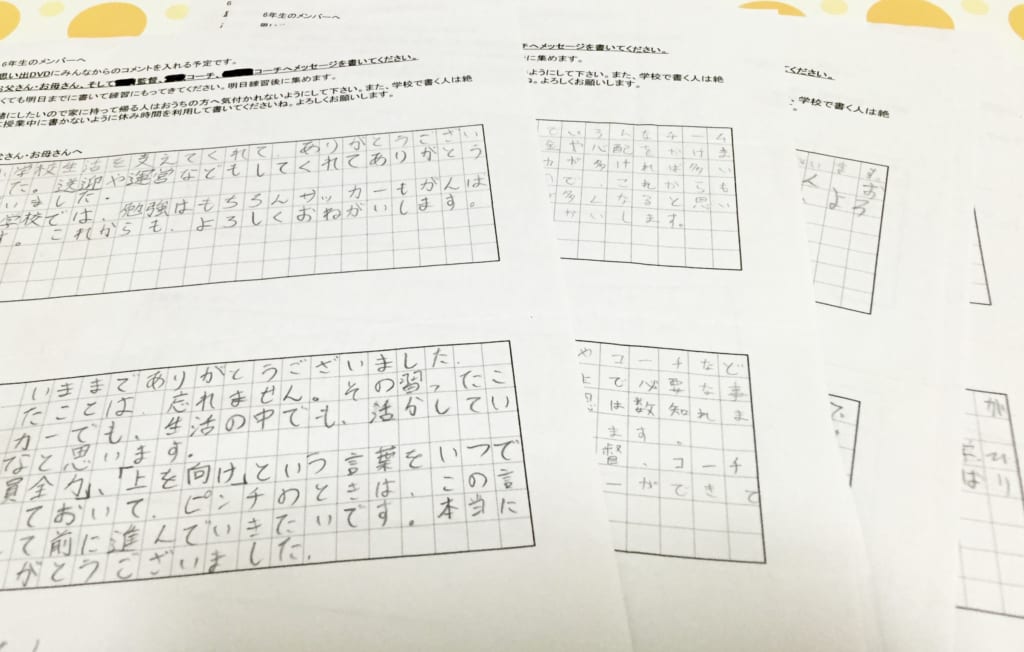 6
6年生のメンバーへ
6年生のメンバーへ
思い出DVDにみんなからのコメントを入れる予定です。
お父さん・お母さん、そして監督、コーチ、コーチへメッセージを書いてください。
くても明日までに書いて練習にもってきてください。明日練習後に集めます。
緒にしたいので家に持って帰る人はおうちの方へ気付かれないようにして下さい。また、学校で書く人は絶
て授業中に書かないように休み時間を利用して書いてくださいね。よろしくお願いします。
父さん・お母さんへ
学校生活を支えてくれて、ありがとうござい
た。送迎や運営などもしてくれてありがとう
いました。
学校では、勉強はもちろんサッカーもがんば
す。これからも、よろしくおねがいします。
いままでありがとうございました。
たことは、忘れません。その習ったこ
カーでも、生活の中でも、活かしてい
なと思います。
「上を向け」という言葉をいつで
ておいて、ピンチのときは、この言
て前に進んでいきたいです。本当に
がとうございました。
チへメッセージを書いてください。
に集めます。
ようにして下さい。また、学校で書く人は絶
。よろしくお願いします。
ていろんなチーム
金や心配をかけま
力が多ければ多い
て、これからも
多くなると思い
がいします。
やコーチなど
上で必要な事
は数知れま
ます。
督、コーチ
ーができて
ください。
、学校で書く人は絶
す。
います
くお
よろ
で。
が
はり